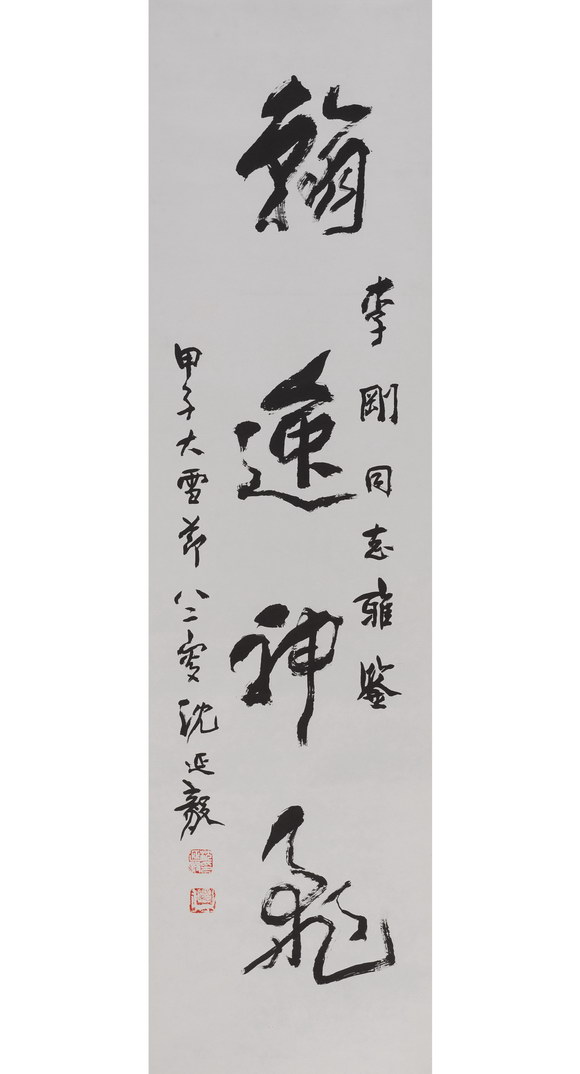 翰逸神飛
李剛同志雅鑒
甲子大雪節八二叟沈延毅